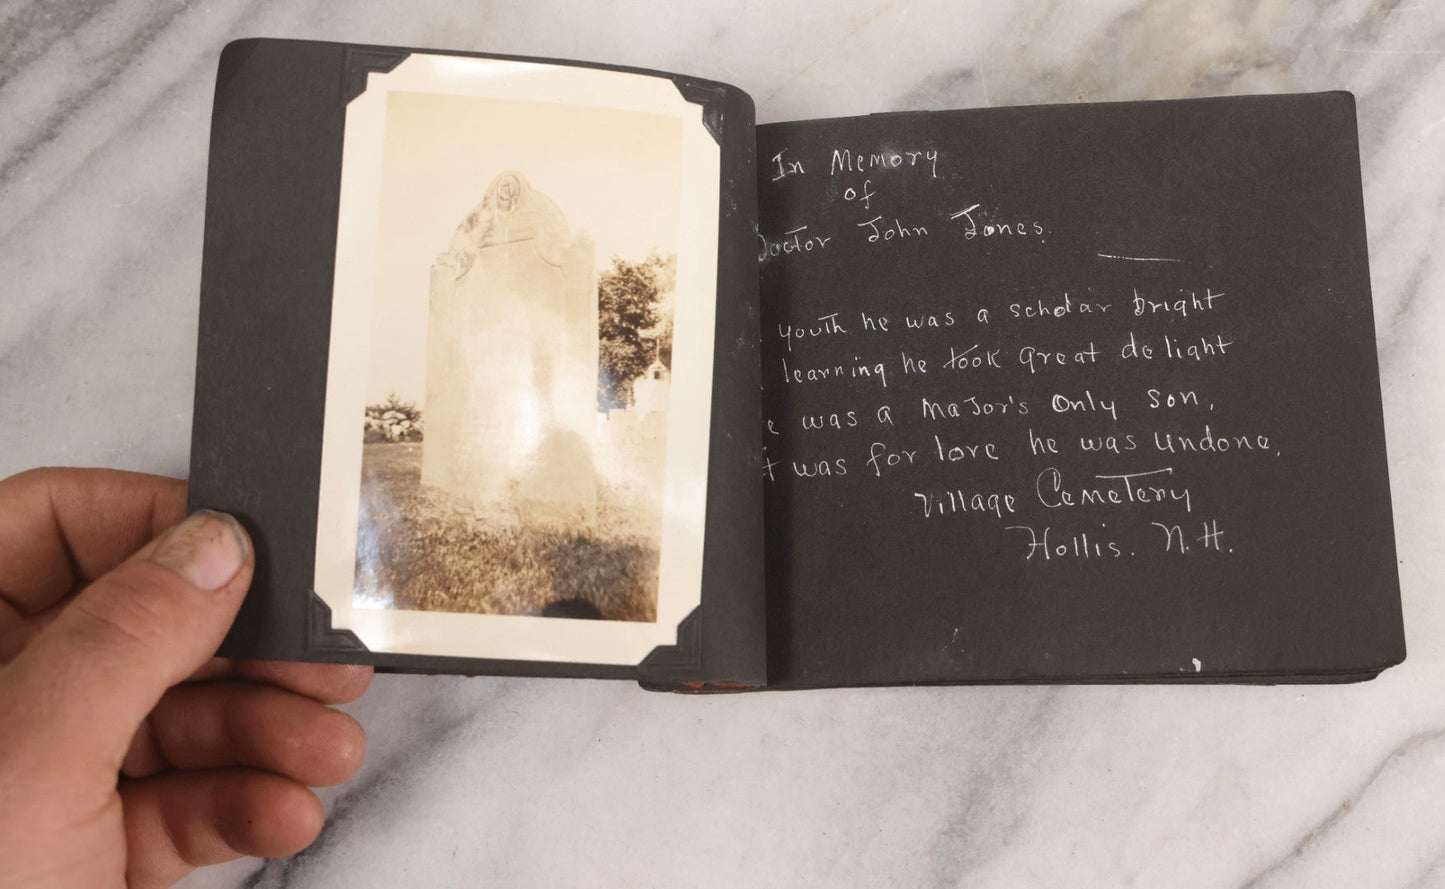 In Memory
of
Doctor John Jones.
youth he was a scholar bright
learning he took great delight
was a Major's Only son,
was for love he was undone.
Village Cemetery
Hollis. N.H.